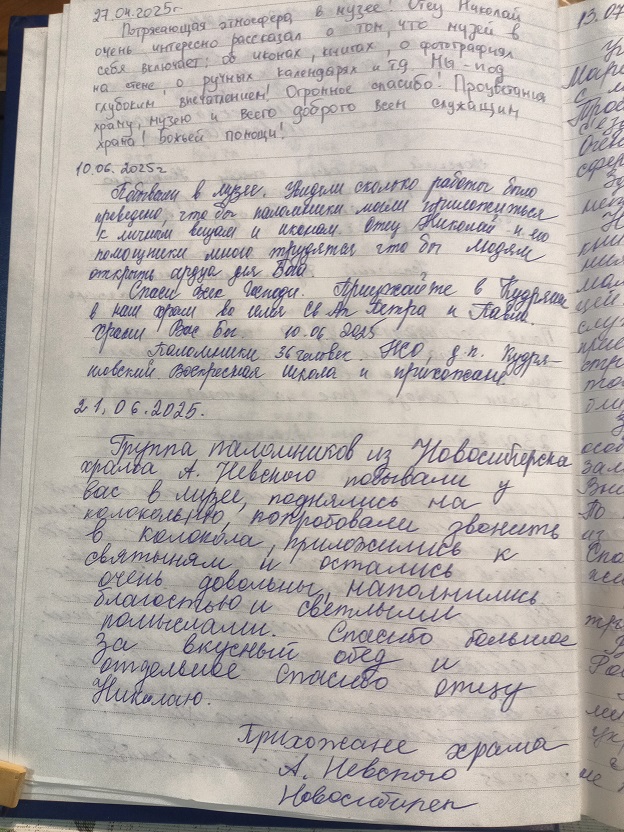 27.04.2025г
Потрясающая атмосфера в музее! Отец Николай
очень интересно рассказал о том, что музей в
себя включает: об иконах, книгах, о фотографиях
на стене, о ручных календарях и т.д. Мы - под
глубоким впечатлением! Огромное спасибо! Процветания
храму, музею и всего доброго всем служащим
храма! Божьей помощи!
10.06.2025г
Побывали в музее. Увидели сколько работы было
проведено, что бы паломники могли приложиться
к личным вещам и иконам. Отец Николай и его
помощники много трудятся что бы людям
открыть сердца для Бога
Спаси Вас Господи. Приезжайте в Кудряши
в наш храм во имя Св Ап Петра и Павла.
Храни Вас Бог. 10.06.2025
Паломники 36 человек. НСО, д.п. Кудря-
шовский Воскресная школа и прихожане.
21.06.2025.
Группа паломников из Новосибирска
храма А. Невского побывали у
вас в музее, поднялись на
колокольню, попробовали звонить
в колокола, приложились к
святыням и остались
очень довольны, наполнились
благостью и светлыми
помыслами. Спасибо большое
за вкусный обед и
отдельное спасибо отцу
Николаю.
Прихожане храма
А. Невского
Новосибирск
13.07